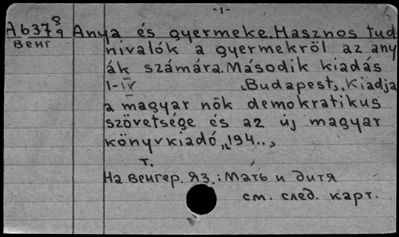 -1-
А637 8/9 Anya és gyermeke. Hasznos tud
Венг nivalók a gyermekröl az any
ák számára. Második kiadás
I-IV „Budapest", Kiadja
a magyar nök demokratikus
szövetsége és az új magyar
könyvkiadó „194..,
т.
На венгер. яз.: Мать и дитя
см. след. карт.